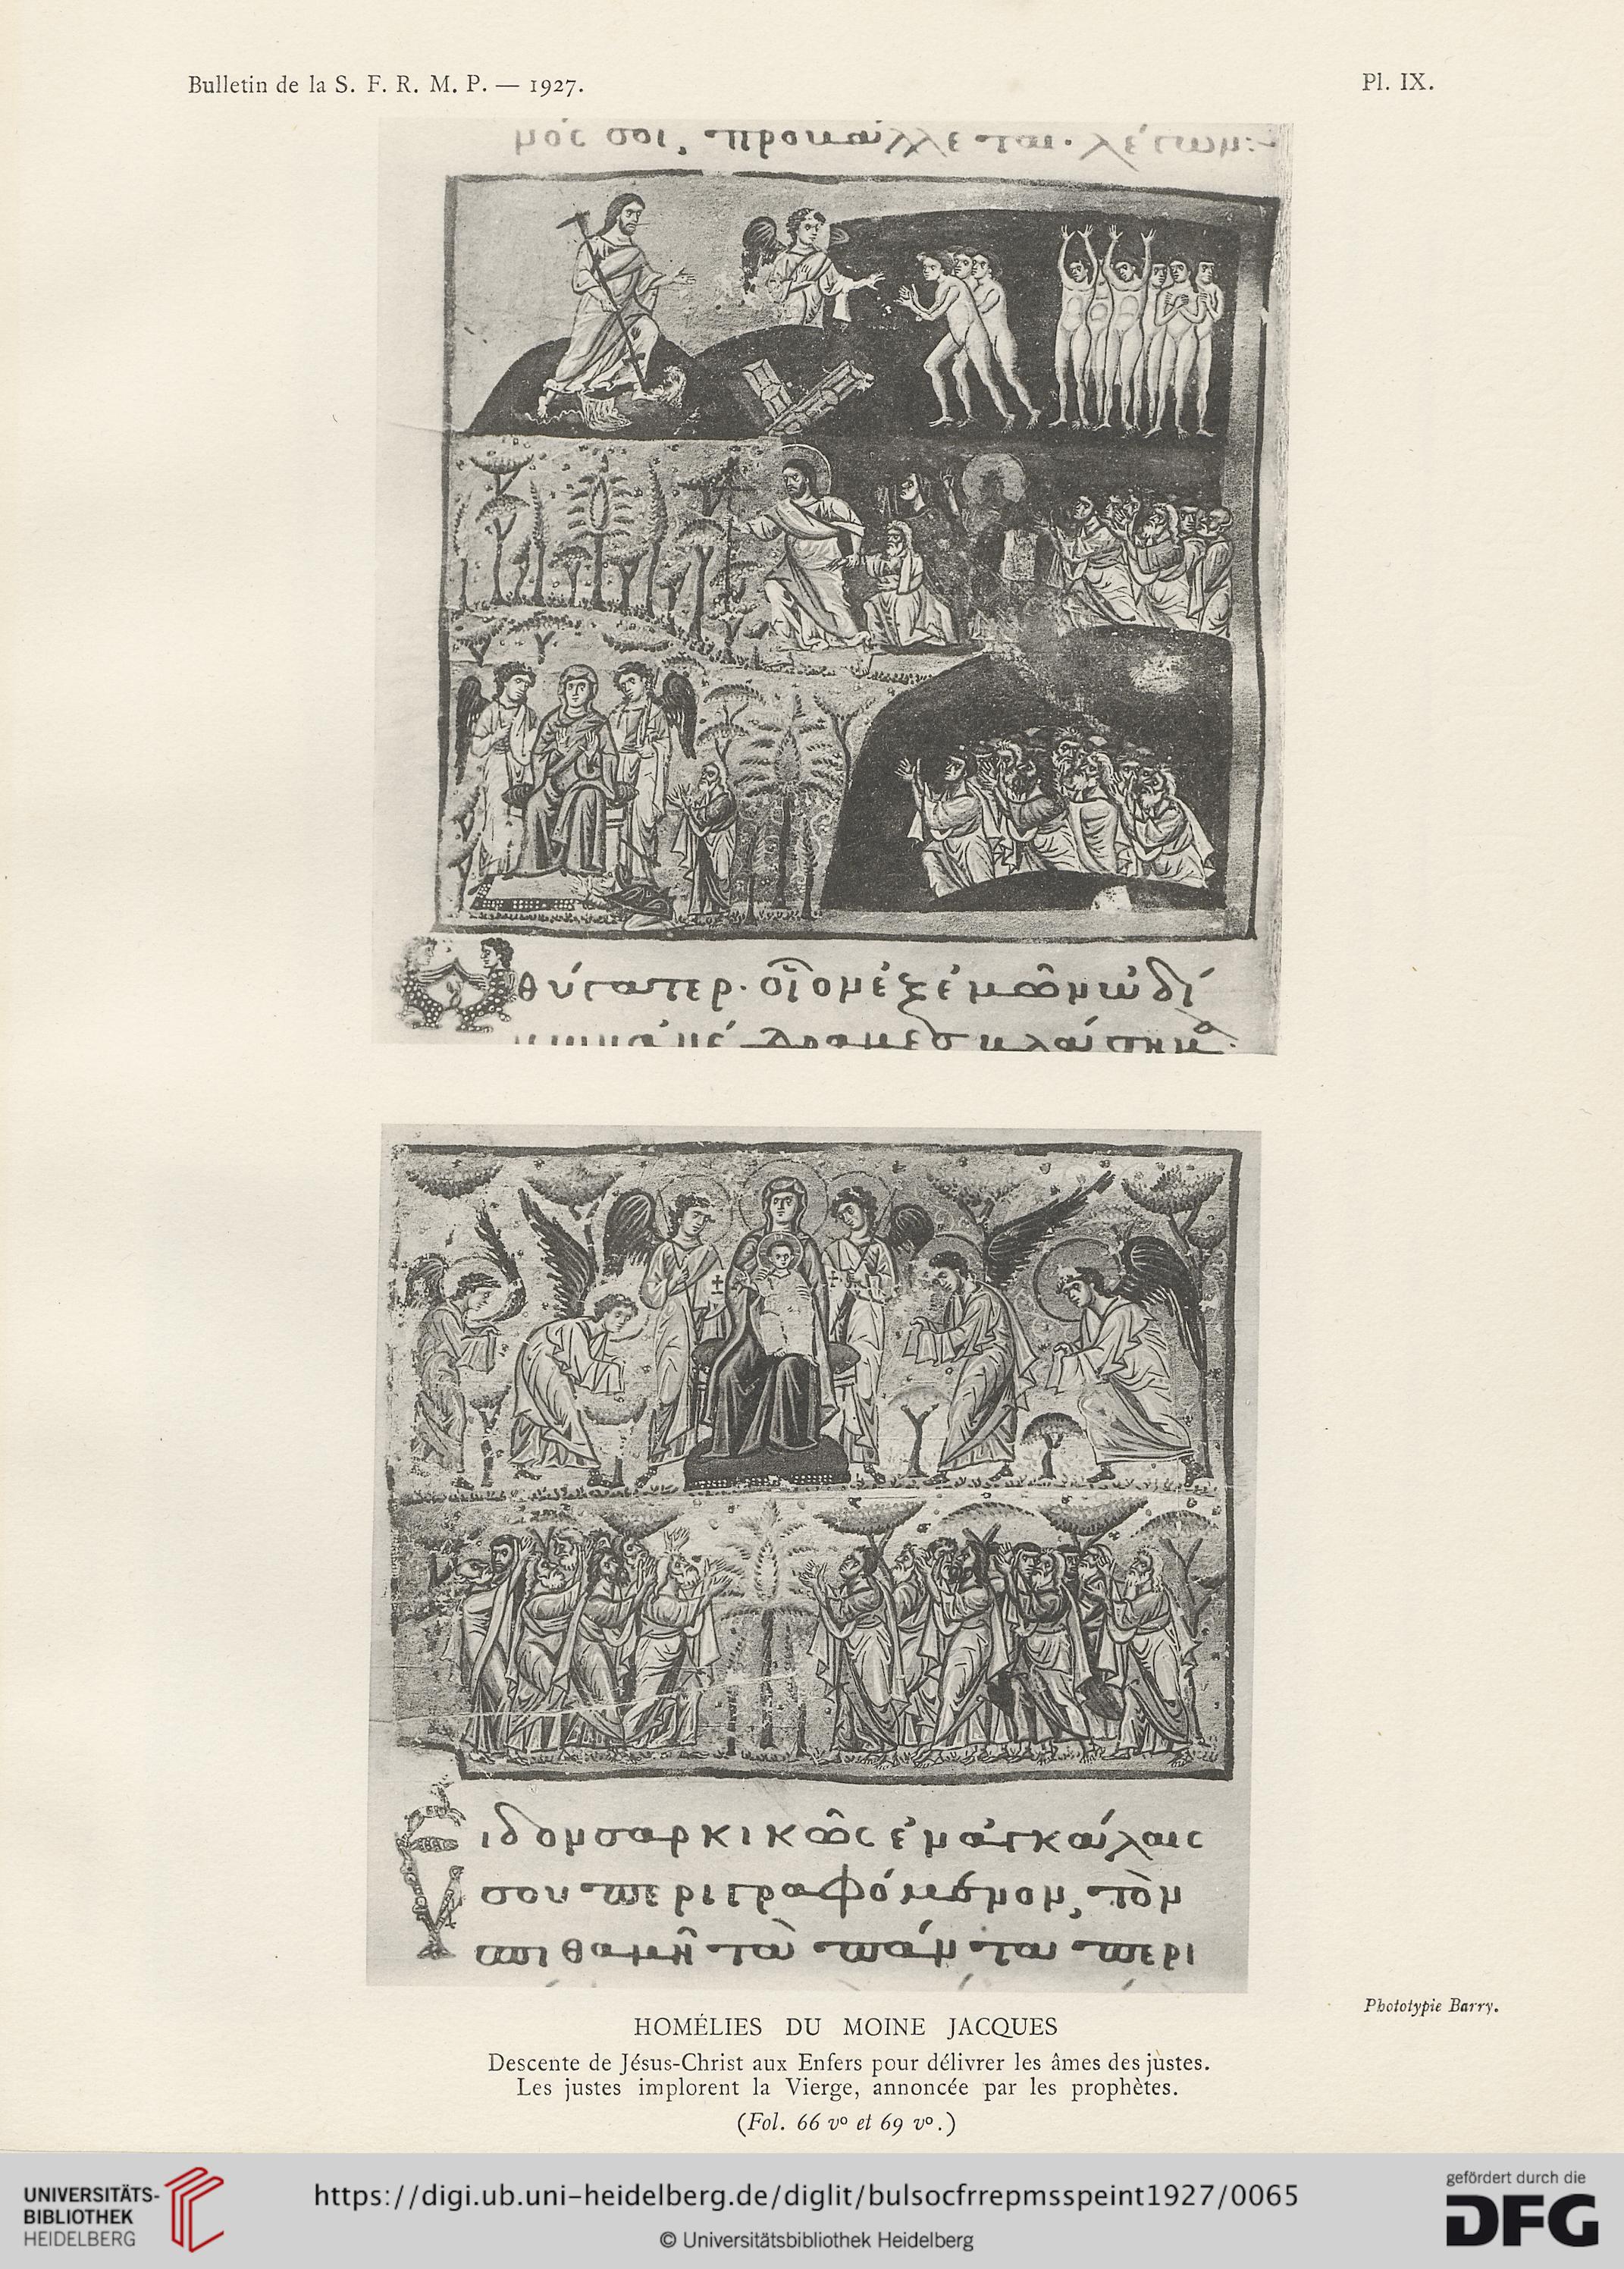 Bulletin de la S. F. R. M. P. — 1927.
Pl. IX.
μός σοι, προκάλλεται· λέγων:
θύγατερ·
ἶδον σαρκικῶς ἐν ἀγκάλαις
σου περιγραφόμενον, τὸν
σπιθαμῆ τὰ πάντα περι
Phototypie Barry.
HOMÉLIES DU MOINE JACQUES
Descente de Jésus-Christ aux Enfers pour délivrer les âmes des justes.
Les justes implorent la Vierge, annoncée par les prophètes.
(Fol. 66 vº et 69 vº.)
UNIVERSITÄTS-
BIBLIOTHEK
HEIDELBERG
https://digi.ub.uni-heidelberg.de/diglit/bulsocfrrepmsspeint1927/0065
© Universitätsbibliothek Heidelberg
gefördert durch die
DFG